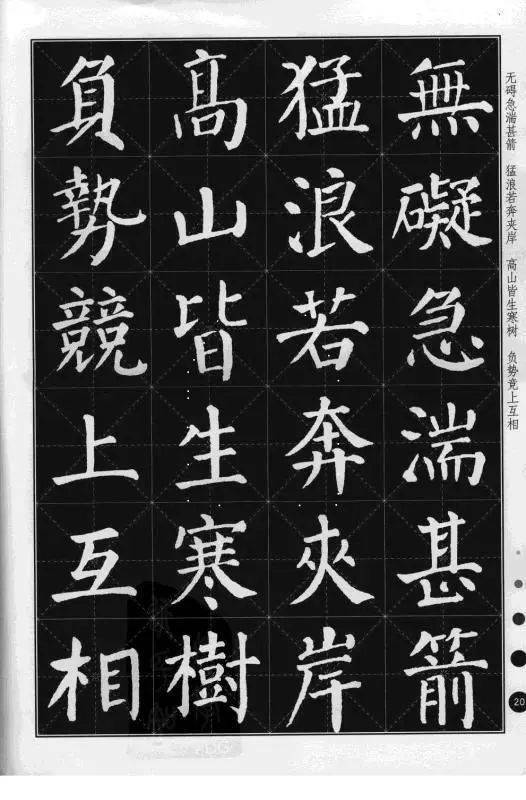 無礙急湍甚箭
猛浪若奔夾岸
高山皆生寒樹
負勢競上互相
无碍急湍甚箭 猛浪若奔夹岸 高山皆生寒树 负势竞上互相
20